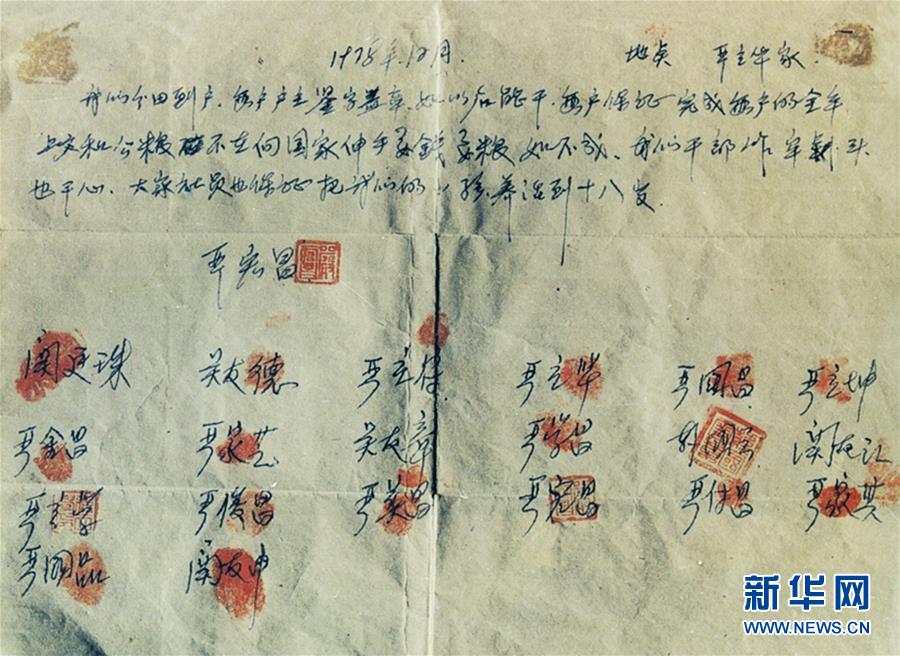 1978年12月. 地点 严立华家.
我们分田到户,每户户主鉴字盖章,如以后能干,每户保证完成每户的全年
上交和公粮,不在向国家伸手要錢要粮,如不成,我们干部作牢剎头
也干心,大家社员也保证把我们的小孩养活到十八岁.
严宏昌
関廷珠 关友德 严立符 严立华 严国昌 严立坤
严金昌 严家芝 关友章 严学昌 韩国云 関友江
严立学 严俊昌 严美昌 严宏昌 严付昌 严家其
严国品 関友申
新华网
WWW.NEWS.CN